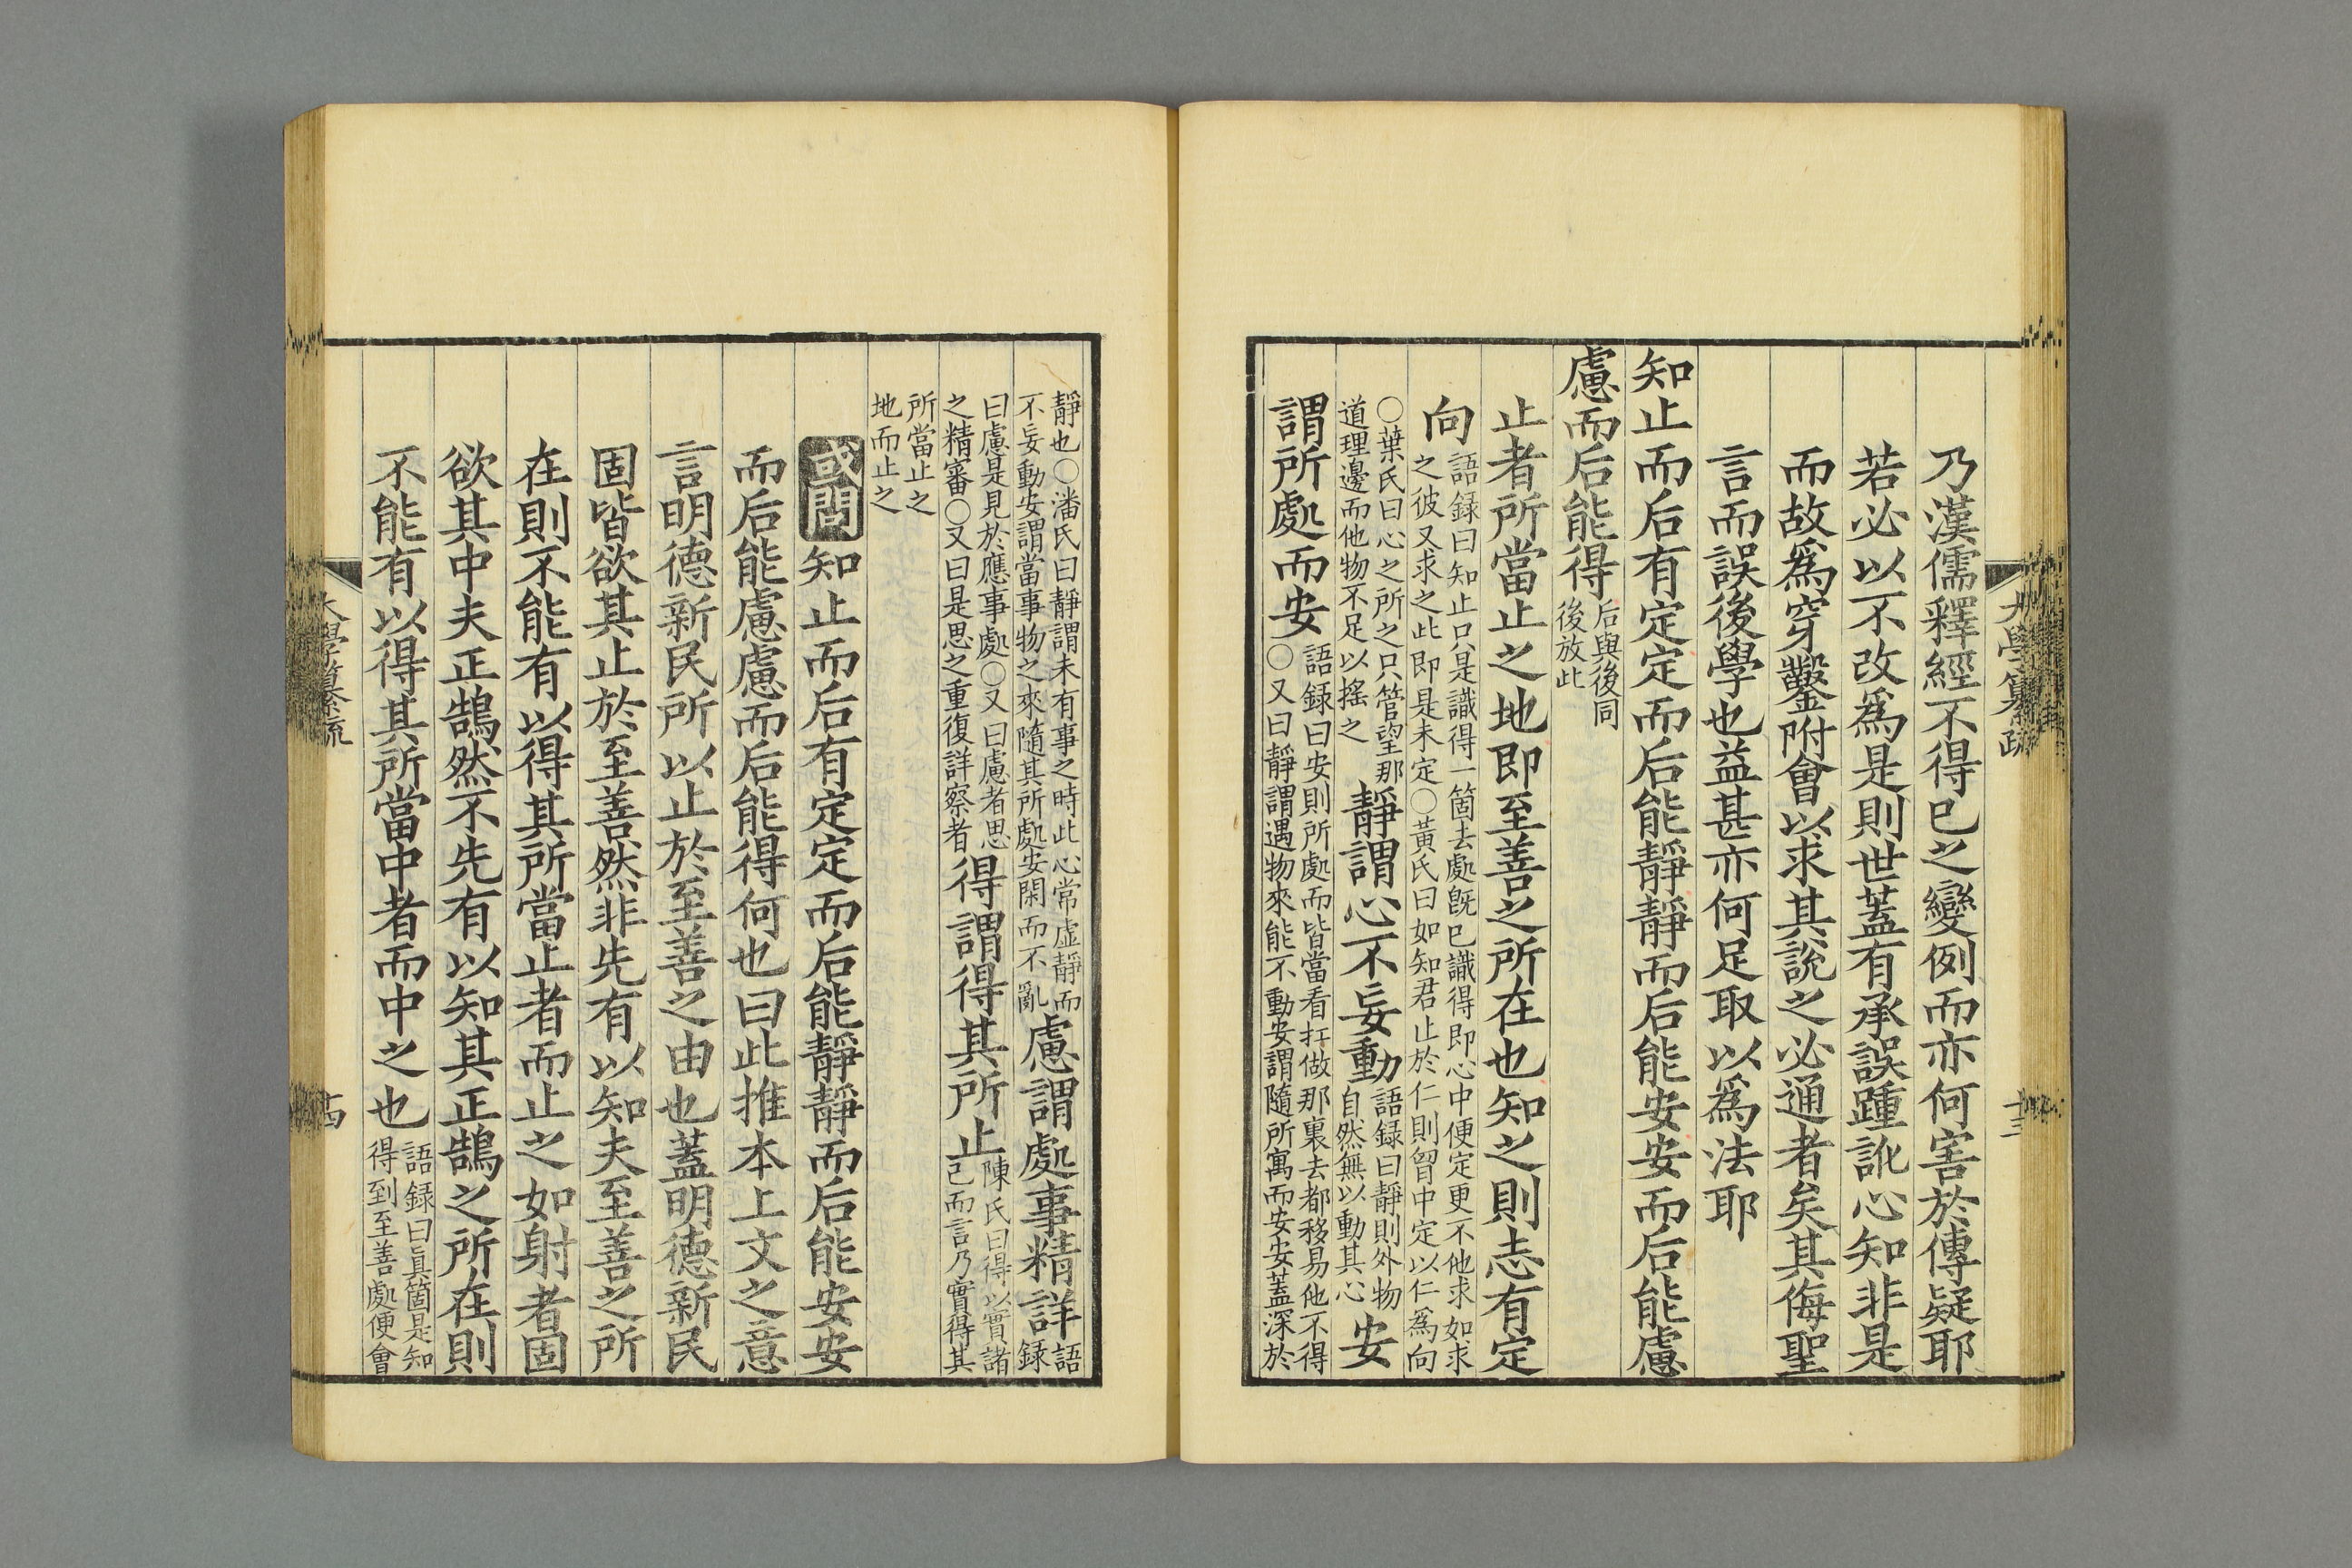 乃漢儒釋經不得已之變例而亦何害於傳疑耶
若必以不改爲是則世蓋有承誤踵訛心知非是
而故爲穿鑿附會以求其說之必通者矣其侮聖
言而誤後學也益甚亦何足取以爲法耶
知止而后有定定而后能靜靜而后能安安而后能慮
慮而后能得后與後同
後放此
止者所當止之地即至善之所在也知之則志有定
向語録曰知止只是識得一箇去處旣已識得即心中便定更不他求如求
之彼又求之此即是未定○黃氏曰如知君止於仁則胷中定以仁爲向
○葉氏曰心之所之只管望那
道理邊而他物不足以搖之
靜謂心不妄動語録曰靜則外物
自然無以動其心
安
謂所處而安語録曰安則所處而皆當看扛做那裏去都移易他不得
○又曰靜謂遇物來能不動安謂隨所寓而安安蓋深於
大學纂疏
十三
靜也○潘氏曰靜謂未有事之時此心常虛靜而
不妄動安謂當事物之來隨其所處安閑而不亂
慮謂處事精詳語
録
曰慮是見於應事處○又曰慮者思
之精審○又曰是思之重復詳察者
得謂得其所止陳氏曰得以實諸
己而言乃實得其
所當止之
地而止之
或問知止而后有定定而后能靜靜而后能安安
而后能慮慮而后能得何也曰此推本上文之意
言明德新民所以止於至善之由也蓋明德新民
固皆欲其止於至善然非先有以知夫至善之所
在則不能有以得其所當止者而止之如射者固
欲其中夫正鵠然不先有以知其正鵠之所在則
不能有以得其所當中者而中之也語録曰眞箇是知
得到至善處便會
大學纂疏
十四